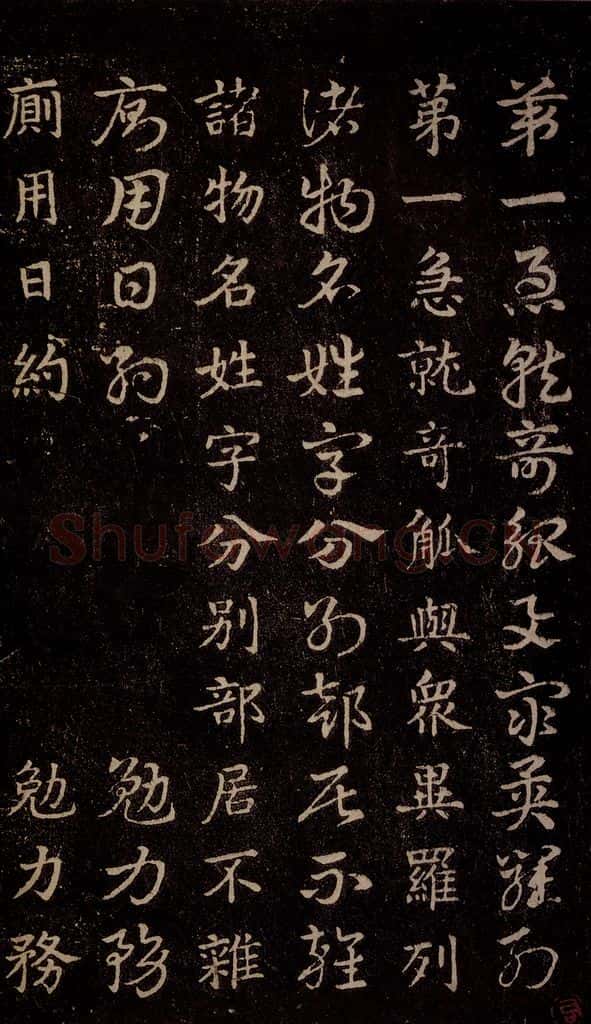 第一急就奇觚與眾異羅列
第一急就奇觚與眾異羅列
諸物名姓字分別部居不雜
諸物名姓字分別部居不雜
廁用日約 勉力務
廁用日約 勉力務
Shufawang.CN